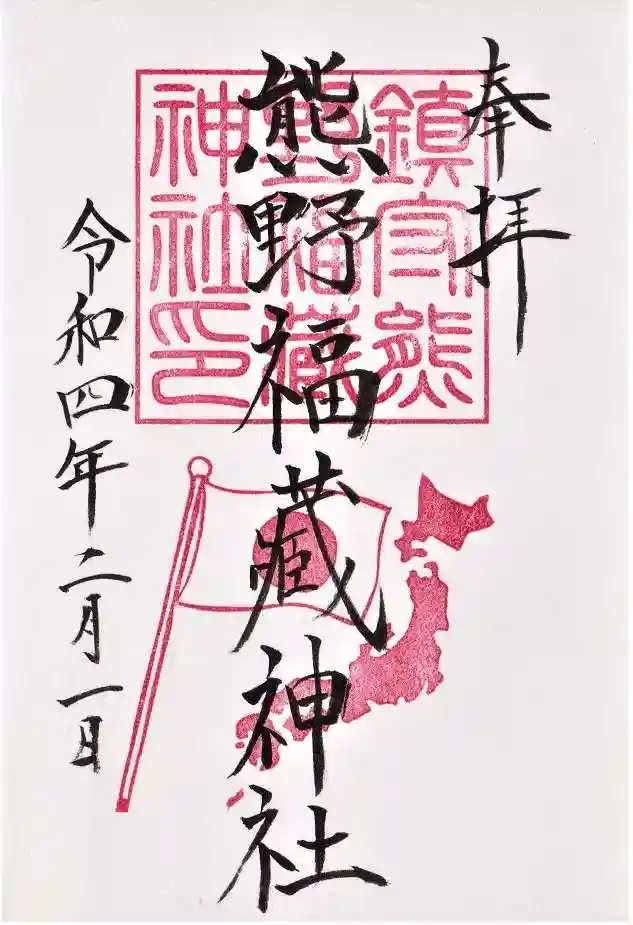 奉拝
鎮守熊
野福蔵
神社印
熊野福蔵神社
令和四年二月一日